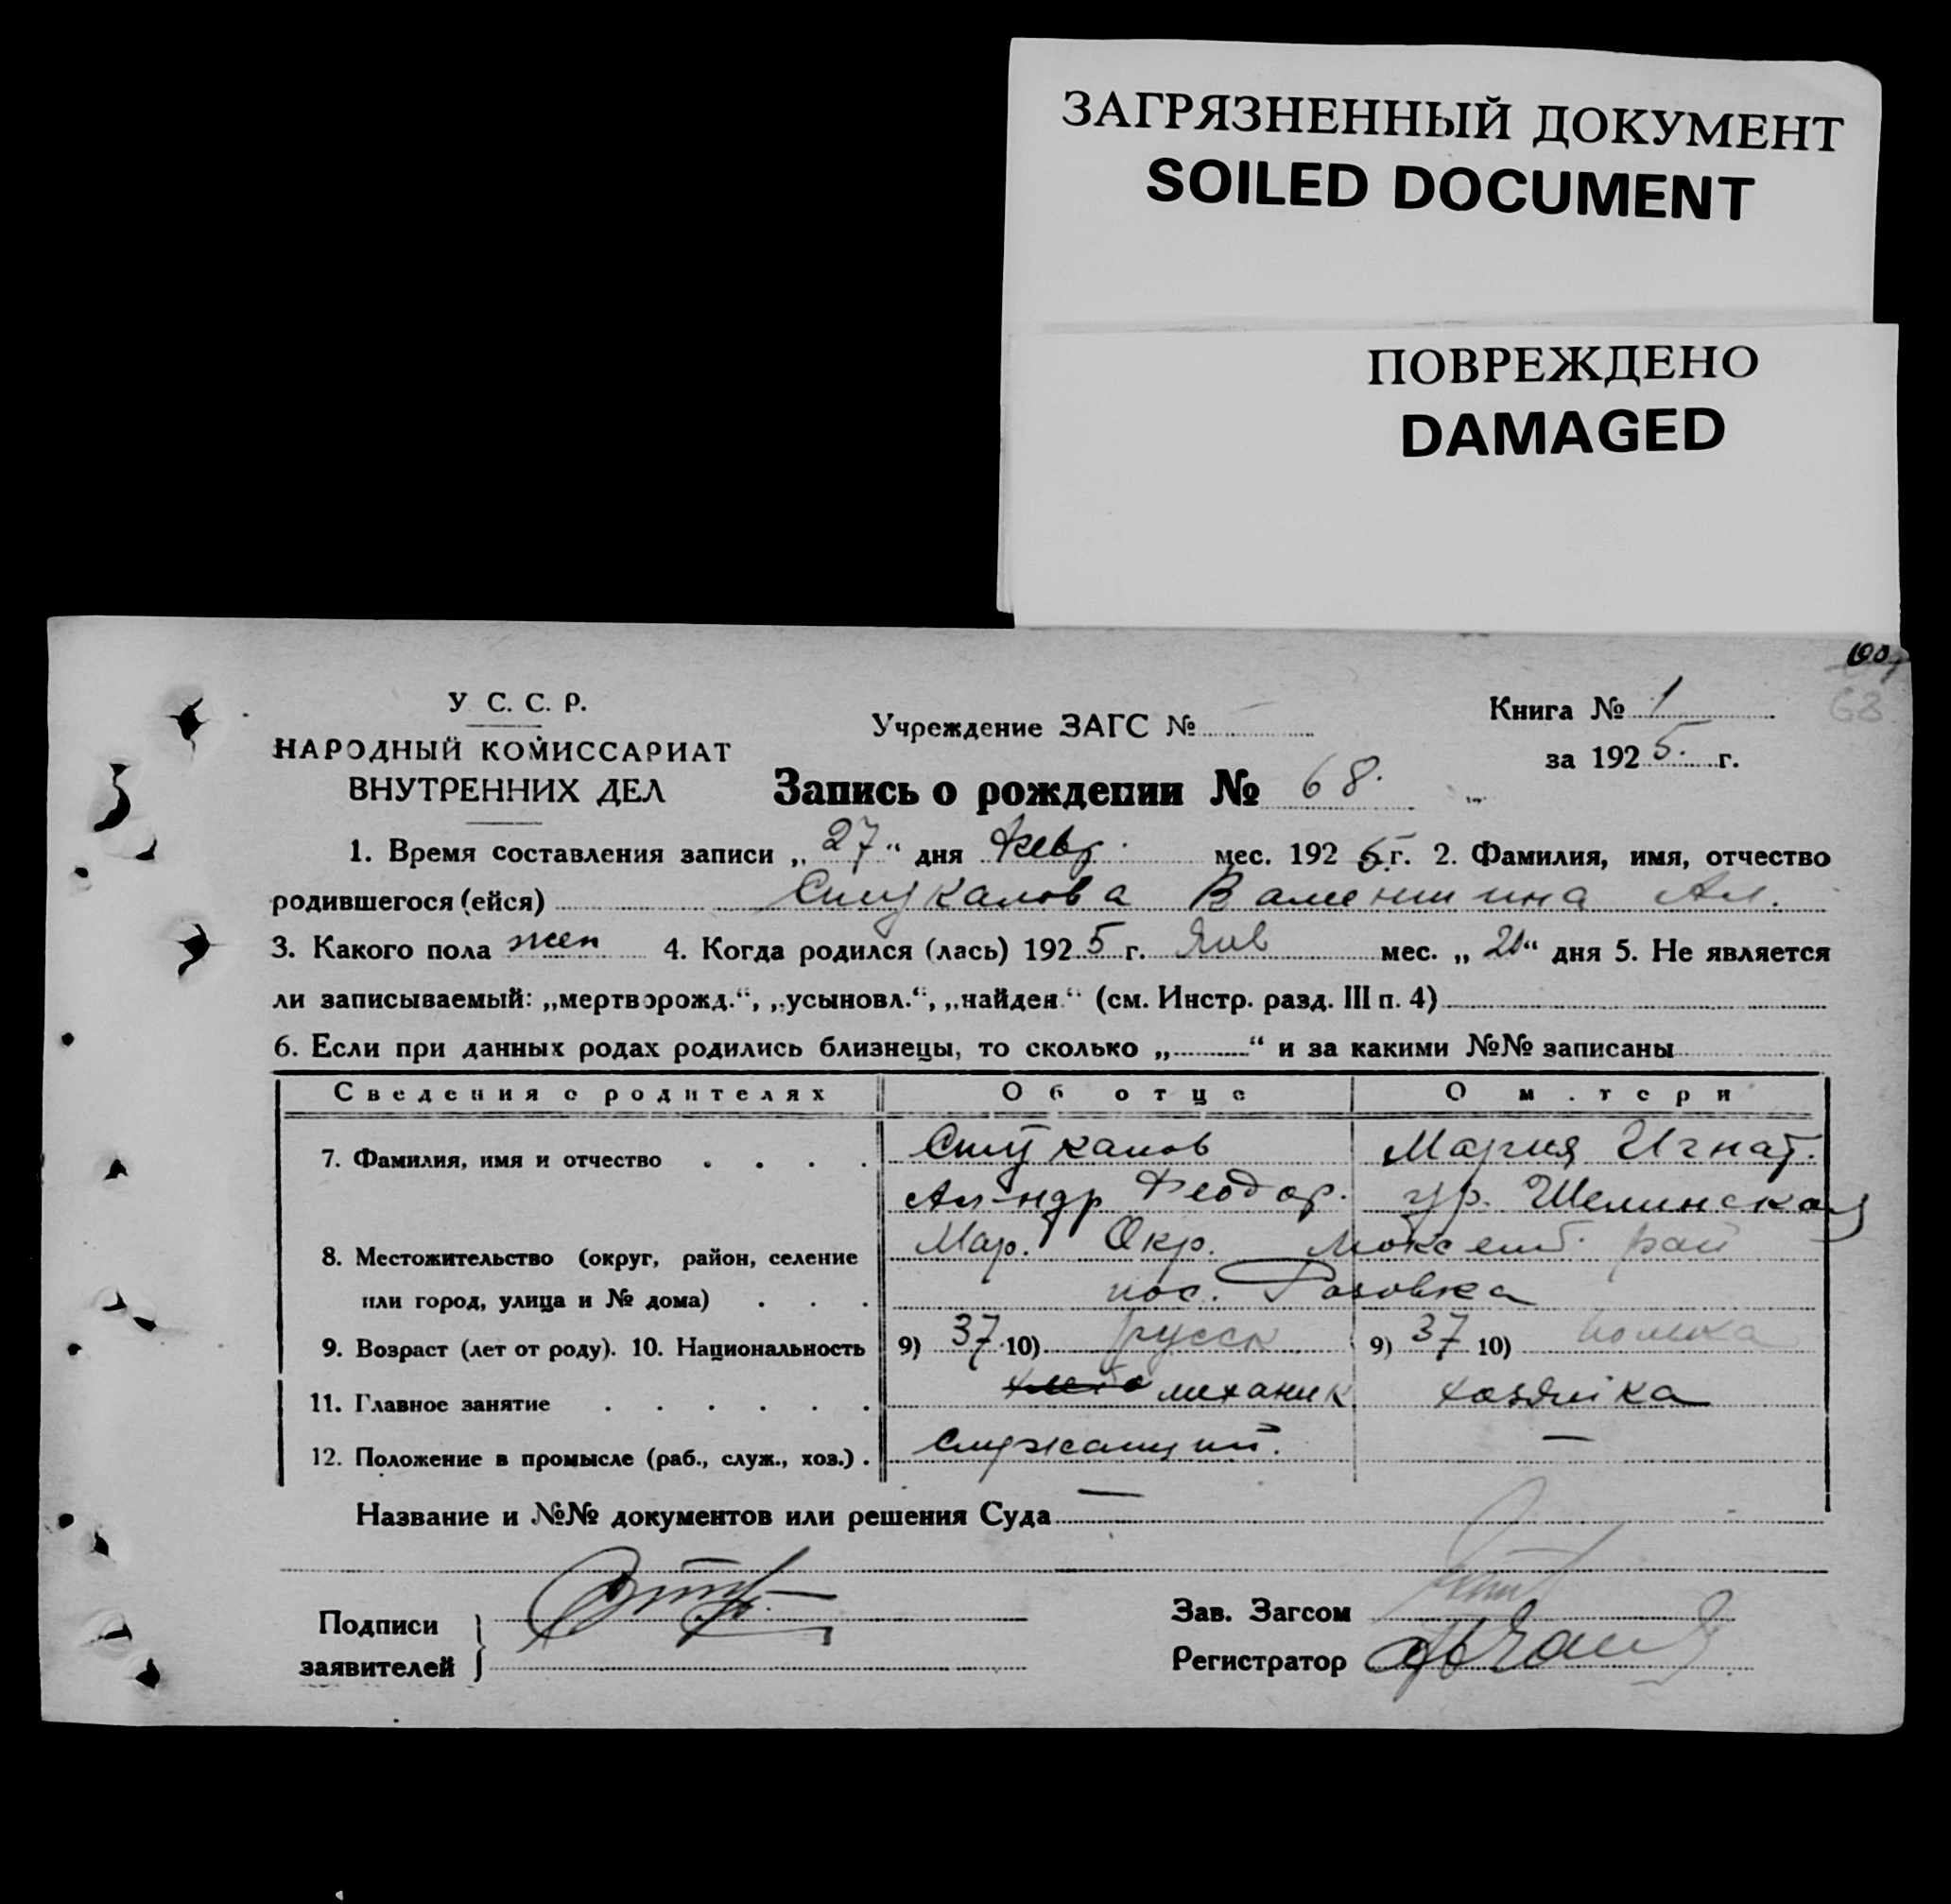 ЗАГРЯЗНЕННЫЙ ДОКУМЕНТ
SOILED DOCUMENT
ПОВРЕЖДЕНО
DAMAGED
У С. С. Р.
НАРОДНЫЙ КОМИССАРИАТ
ВНУТРЕННИХ ДЕЛ
Учреждение ЗАГС №
Книга № 1
68
за 1925. г.
Запись о рождении № 68.
1. Время составления записи „27“ дня Февр. мес. 1925 г. 2. Фамилия, имя, отчество
родившегося (ейся) Стукалова Валентина Ал.
3. Какого пола жен 4. Когда родился (лась) 1925 г. Янв мес. „ “ дня 5. Не является
ли записываемый: „мертворожд.“, „усыновл.“, „найден“ (см. Инстр. разд. III п. 4)
6. Если при данных родах родились близнецы, то сколько „ “ и за какими №№ записаны
Сведения о родителях Об отце О м.тери
7. Фамилия, имя и отчество Стукалов Мария Игнат.
Ал-ндр Феодор. ур. Шелинская
8. Местожительство (округ, район, селение Мар. Окр. рай
или город, улица и № дома) пос. Розовка
9. Возраст (лет от роду). 10. Национальность 9) 37 10) русск 9) 37 10) полька
11. Главное занятие механик хозяйка
12. Положение в промысле (раб., служ., хоз.) служащий. —
Название и №№ документов или решения Суда —
Подписи
заявителей
Зав. Загсом
Регистратор